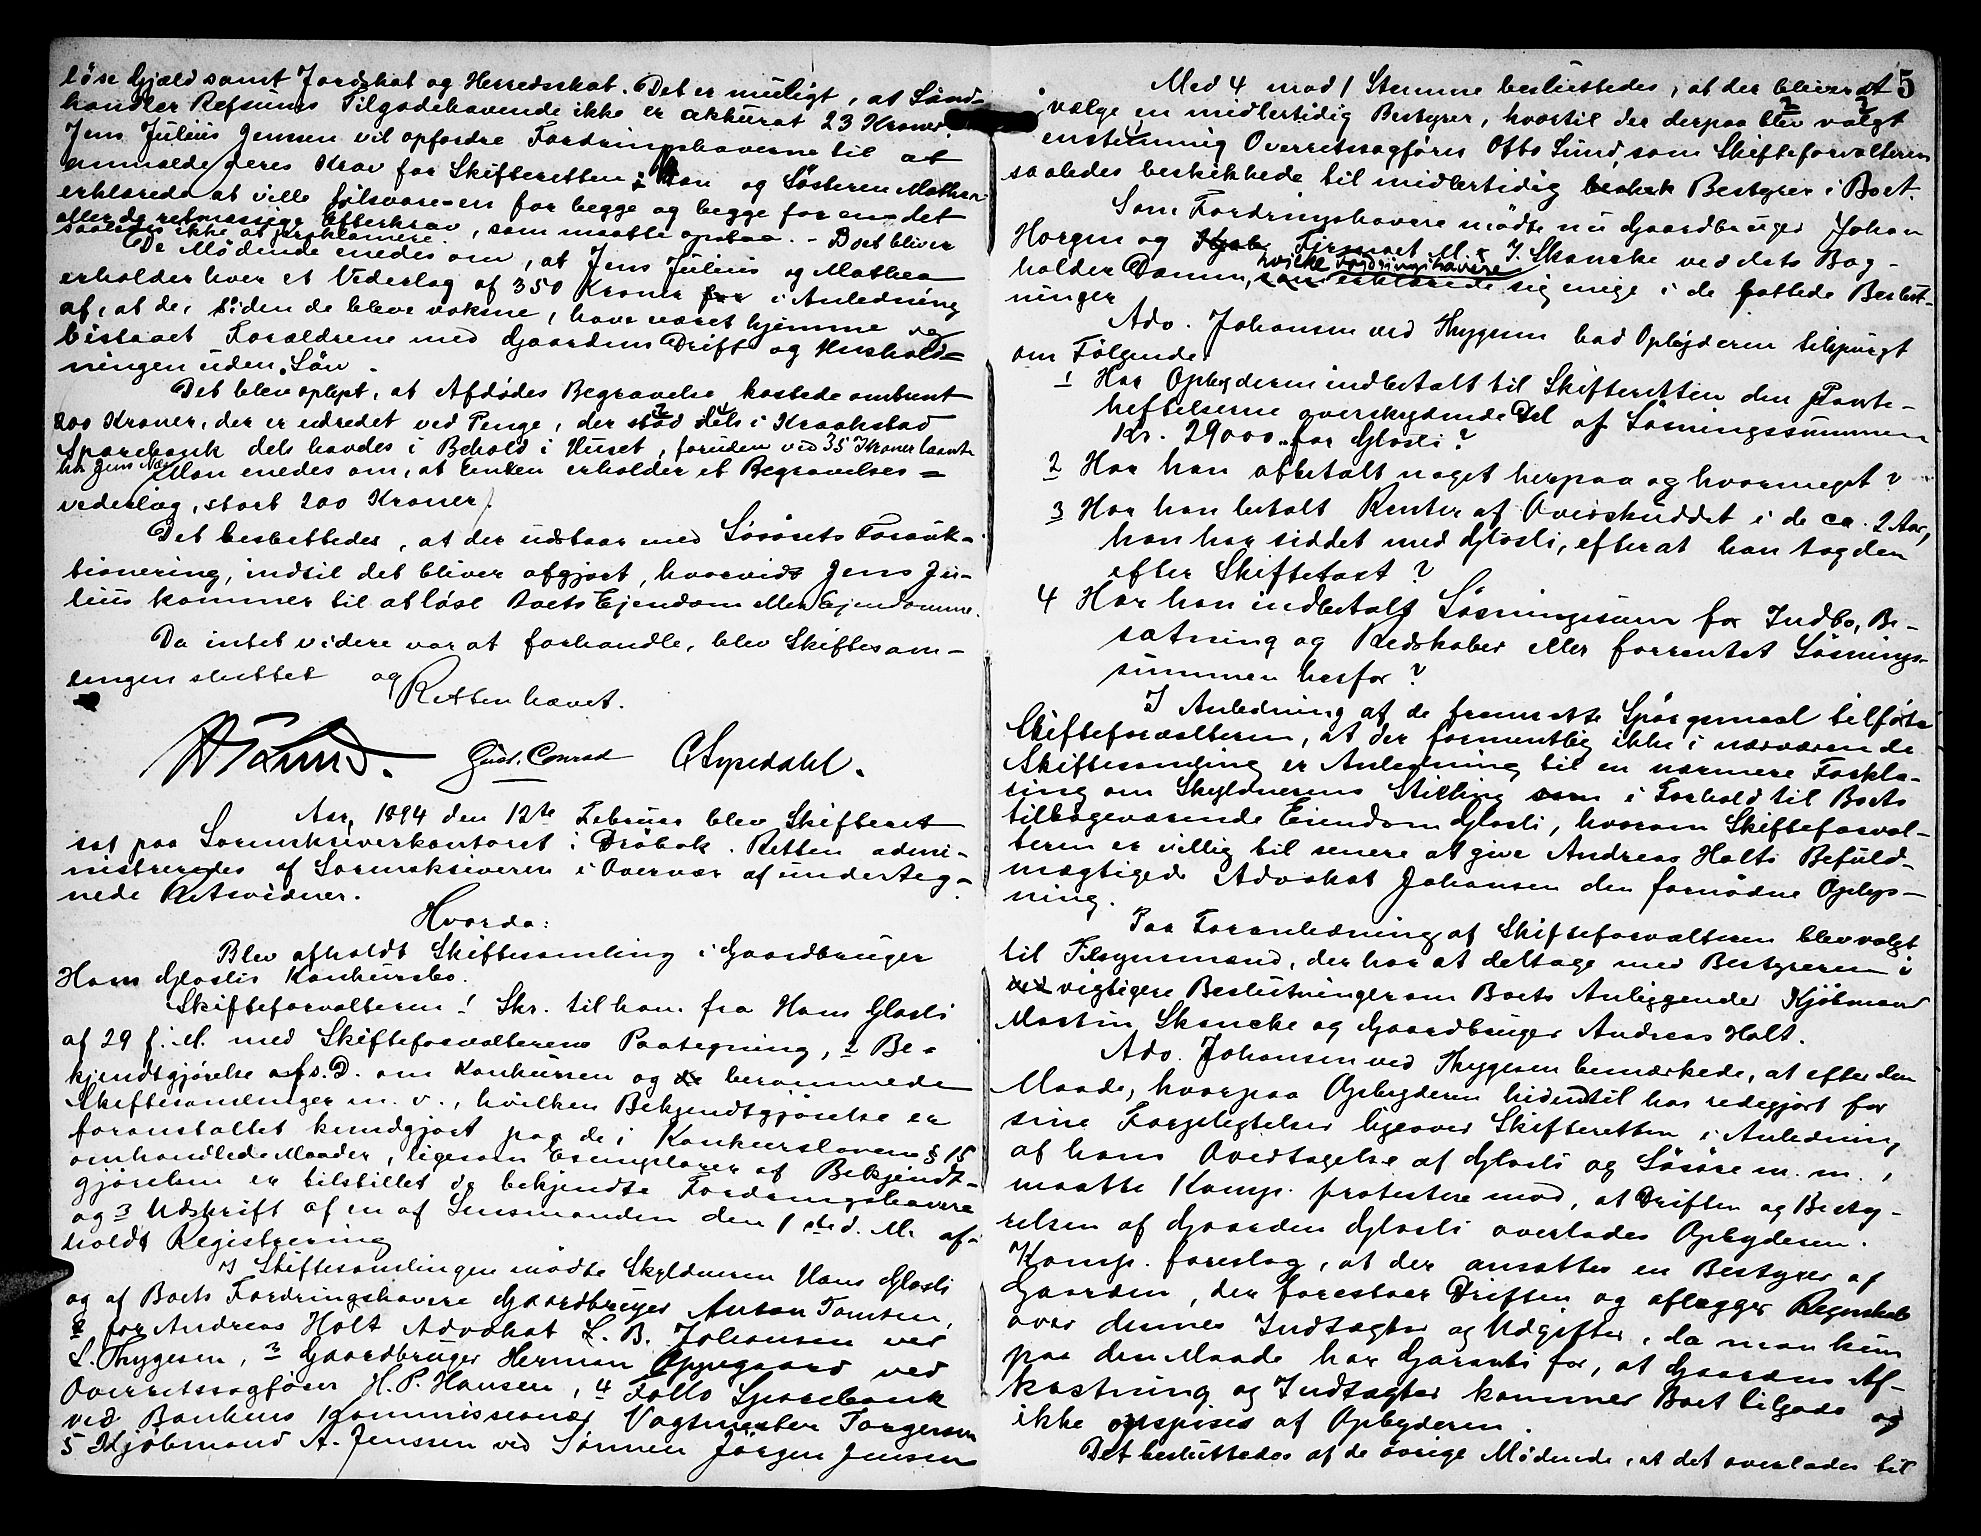 löse Gjæld samt Jordskat og Herredsskat. Det er muligt, at Land-
handler Refsums Tilgodehavende ikke er akkurat 23 Kroner.
Jens Julius Jensen vil opfordre Fordringshaverne til at
anmelde deres Krav for Skifteretten; han og Søsteren Mathea
erklærede at ville selvskyldnere en for begge og begge for en det
eller de retmæssige Efterkrav, som maatte opstaa. - Boet bliver
saaledes ikke at proklamere.
De Mødende enedes om, at Jens Julius og Mathea
erholder hver et Vederlag af 350 Kroner for i Anledning
af, at de, siden de bleve voksne, have været hjemme og
bistaaet Forældrene med Gaardens Drift og Hushold=
ningen uden Løn.
Det blev oplyst, at Afdødes Begravelse kostede omtrent
200 Kroner, der er udredet ved Penge, der stod dels i Kraakstad
Sparebank dels havdes i Behold i Huset, foruden ved 35 Kroner laante
hos Jens Næs. Man enedes om, at Enken erholder et Begravelses=
vederlag, stort 200 Kroner.
Det besluttedes, at der udstaar med Løsørets Forauk-
tionering, indtil det bliver afgjort, hvorvidt Jens Ju-
lius kommer til at løse Boets Ejendom eller Ejendomme.
Da intet videre var at forhandle, blev Skiftesam-
lingen sluttet og
Retten hævet.
Lund. Gust. Conrad C. Sypedahl.
Aar 1894 den 12te Februar blev Skifteret
sat paa Sorenskriverkontoret i Drøbak. Retten admi-
nistreredes af Sorenskriveren i Overvær af underteg-
nede Retsvidner.
Hvorda:
Blev afholdt Skiftesamling i Gaardbruger
Hans Gloslis Konkursbo.
Skifteforvalteren 1 Skr. til ham fra Hans Glosli
af 29 f. M. med Skifteforvalterens Paategning, 2 Be-
kjendtgjørelse af s. D. om Konkursen og de berammede
Skiftesamlinger m. v., hvilken Bekjendtgjørelse er
foranstaltet kundgjort paa de i Konkurslovens § 15
omhandlede Maader, ligesom Exemplarer af Bekjendt-
gjørelsen er tilstillet de bekjendte Fordringshavere
og 3 Udskrift af en af Lensmanden den 1ste d. M. af-
holdt Registrering
I Skiftesamlingen mødte Skyldneren Hans Glosli
og af Boets Fordringshavere Gaardbruger Anton Tomten,
2 for Andreas Holt Advokat L. B. Johansen ved
L. Thygesen, 3 Gaardbruger Herman Oppegaard ved
Overretssagfører H. P. Hansen, 4 Follo Sparebank
ved Bankens Kommissionær Vagtmester Torgersen
5 Kjøbmand A. Jenssen ved Sønnen Jørgen Jensen
5
Med 4 mod 1 Stemme besluttedes, at der bliver at
vælge en midlertidig Bestyrer, hvortil der derpaa blev valgt
enstemmig Overretssagfører Otto Lund, som Skifteforvalteren
saaledes beskikkede til midlertidig Bestyrer i Boet.
Som Fordringshavere mødte nu Gaardbruger Johan
Horgen og Firmaet M. & J. Skancke ved dets Bog-
holder Damm, hvilke Fordringshavere erklærede sig enige i de fattede Beslut-
ninger
Adv. Johansen ved Thygesen bad Opbyderen tilspurgt
om Følgende
1 Har Opbyderen indbetalt til Skifteretten den Pante-
heftelserne overskydende Del af Løsningssummen
Kr. 29000.. for Glosli?
2 Har han afbetalt noget herpaa og hvormeget?
3 Har han betalt Renter af Overskuddet i de ca. 2 Aar,
han har siddet med Glosli, efterat han tog den
efter Skiftetaxt?
4 Har han indbetalt Løsningssum for Indbo, Be-
sætning og Redskaber eller forrentet Løsnings-
summen herfor?
I Anledning af de fremsatte Spørgsmaal tilførte
Skifteforvalteren, at der formentlig ikke i nærværende
Skiftesamling er Anledning til en nærmere Forkla-
ring om Skyldnerens Stilling som i Forhold til Boets
tilbageværende Eiendom Glosli, hvorom Skifteforval-
teren er villig til senere at give Andreas Holts Befuld-
mægtigede Advokat Johansen den fornødne Oplys-
ning.
Paa Foranledning af Skifteforvalteren blev valgt
til Tilsynsmænd, der har at deltage med Bestyreren i
ved vigtigere Beslutninger om Boets Anliggender Kjøbmand
Martin Skancke og Gaardbruger Andreas Holt.
Adv. Johansen ved Thygesen bemærkede, at efter den
Maade, hvorpaa Opbyderen hidindtil har redegjort for
sine Forpligtelser ligeover Skifteretten i Anledning
af hans Overtagelse af Glosli og Løsøre m. m.,
maatte Komp. protestere mod, at Driften og Besty-
relsen af Gaarden Glosli overlades Opbyderen.
Komp. foreslog, at der ansættes en Bestyrer af
Gaarden, der forestaar Driften og aflægger Regnskab
over dennes Indtægter og Udgifter, da man kun
paa den Maade har Garanti for, at Gaardens Af-
kastning og Indtægter kommer Boet tilgode og
ikke opspises af Opbyderen.
Det besluttedes af de øvrige Mødende, at det overlades til